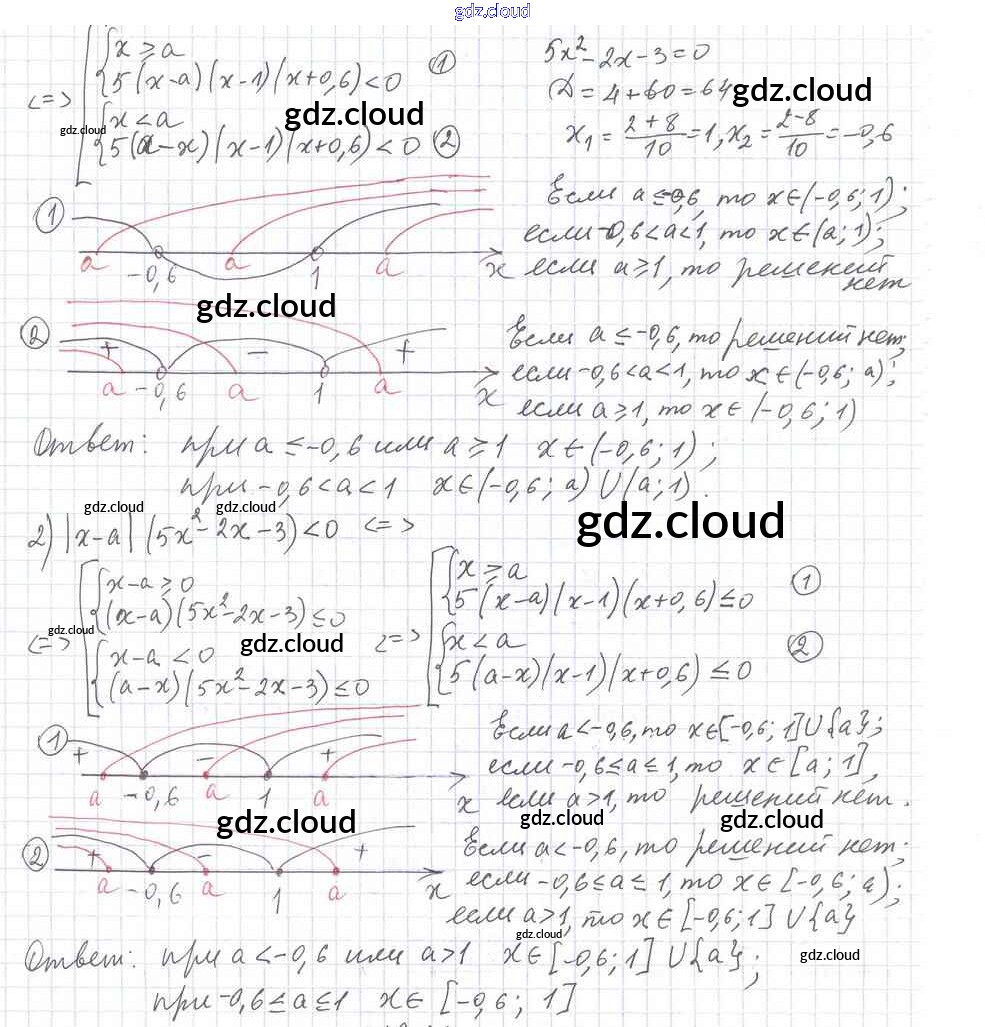 gdz.cloud
<=> [ { x ≥ a
{ 5(x-a)(x-1)(x+0,6)<0 ①
{ x < a
{ 5(a-x)(x-1)(x+0,6)<0 ②
gdz.cloud
gdz.cloud
5x²-2x-3=0
D=4+60=64
gdz.cloud
x₁ = (2+8)/10 = 1, x₂ = (2-8)/10 = -0,6
① a -0,6 a 1 a x
Если a≤-0,6, то x∈(-0,6; 1);
если -0,6<a<1, то x∈(a; 1);
если a≥1, то решений нет
gdz.cloud
② + - +
a -0,6 a 1 a x
Если a ≤ -0,6, то решений нет;
если -0,6<a<1, то x∈(-0,6; a);
если a≥1, то x∈(-0,6; 1)
Ответ: при a ≤ -0,6 или a ≥ 1 x∈(-0,6; 1);
при -0,6<a<1 x∈(-0,6; a)∪(a; 1).
gdz.cloud gdz.cloud
gdz.cloud
2) |x-a|(5x²-2x-3)<0 <=>
<=> [ { x-a ≥ 0
{ (x-a)(5x²-2x-3)≤0
{ x-a < 0
{ (a-x)(5x²-2x-3)≤0
gdz.cloud
gdz.cloud
<=> [ { x ≥ a
{ 5(x-a)(x-1)(x+0,6)≤0 ①
{ x < a
{ 5(a-x)(x-1)(x+0,6)≤0 ②
① + - +
a -0,6 a 1 a x
Если a<-0,6, то x∈[-0,6; 1]∪{a};
если -0,6≤a≤1, то x∈[a; 1],
если a>1, то решений нет.
gdz.cloud
gdz.cloud gdz.cloud
② + - +
a -0,6 a 1 a x
Если a<-0,6, то решений нет;
если -0,6≤a≤1, то x∈[-0,6; a);
если a>1, то x∈[-0,6; 1]∪{a}
gdz.cloud
Ответ: при a<-0,6 или a>1 x∈[-0,6; 1]∪{a};
gdz.cloud
при -0,6≤a≤1 x∈[-0,6; 1]